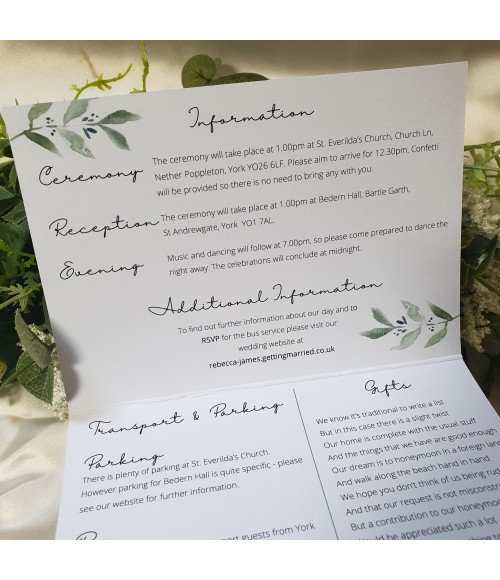 Information
Ceremony
The ceremony will take place at 1.00pm at St. Everilda's Church, Church Ln,
Nether Poppleton, York YO26 6LF. Please aim to arrive for 12.30pm. Confetti
will be provided so there is no need to bring any with you.
Reception
The ceremony will take place at 1.00pm at Bedern Hall, Bartle Garth,
St Andrewgate, York YO1 7AL.
Evening
Music and dancing will follow at 7.00pm, so please come prepared to dance the
night away. The celebrations will conclude at midnight.
Additional Information
To find out further information about our day and to
RSVP for the bus service please visit our
wedding website at
rebecca-james.gettingmarried.co.uk
Transport & Parking
Parking
There is plenty of parking at St. Everilda's Church.
However parking for Bedern Hall is quite specific - please
see our website for further information.
guests from York
Gifts
We know it's traditional to write a list
But in this case there is a slight twist
Our home is complete with the usual stuff
And the things that we have are good enough
Our dream is to honeymoon in a foreign land
And walk along the beach hand in hand
We hope you don't think of us being rude
And that our request is not misconstr
But a contribution to our honeymoon
Would be appreciated such a lot